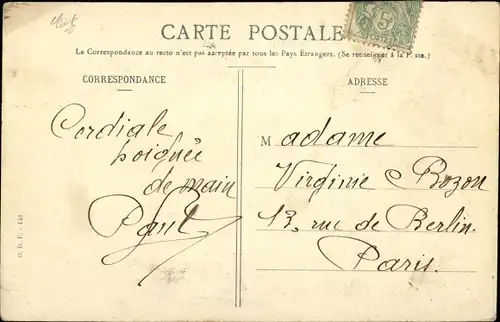 CARTE POSTALE
5
La Correspondance au recto n'est pas acceptée par tous les Pays Etrangers. (Se renseigner à la Poste.)
CORRESPONDANCE
Cordiale
poignée
de main
Paul
O. D. P. - 148
ADRESSE
Madame
Virginie Bozon
13, rue de Berlin.
Paris.